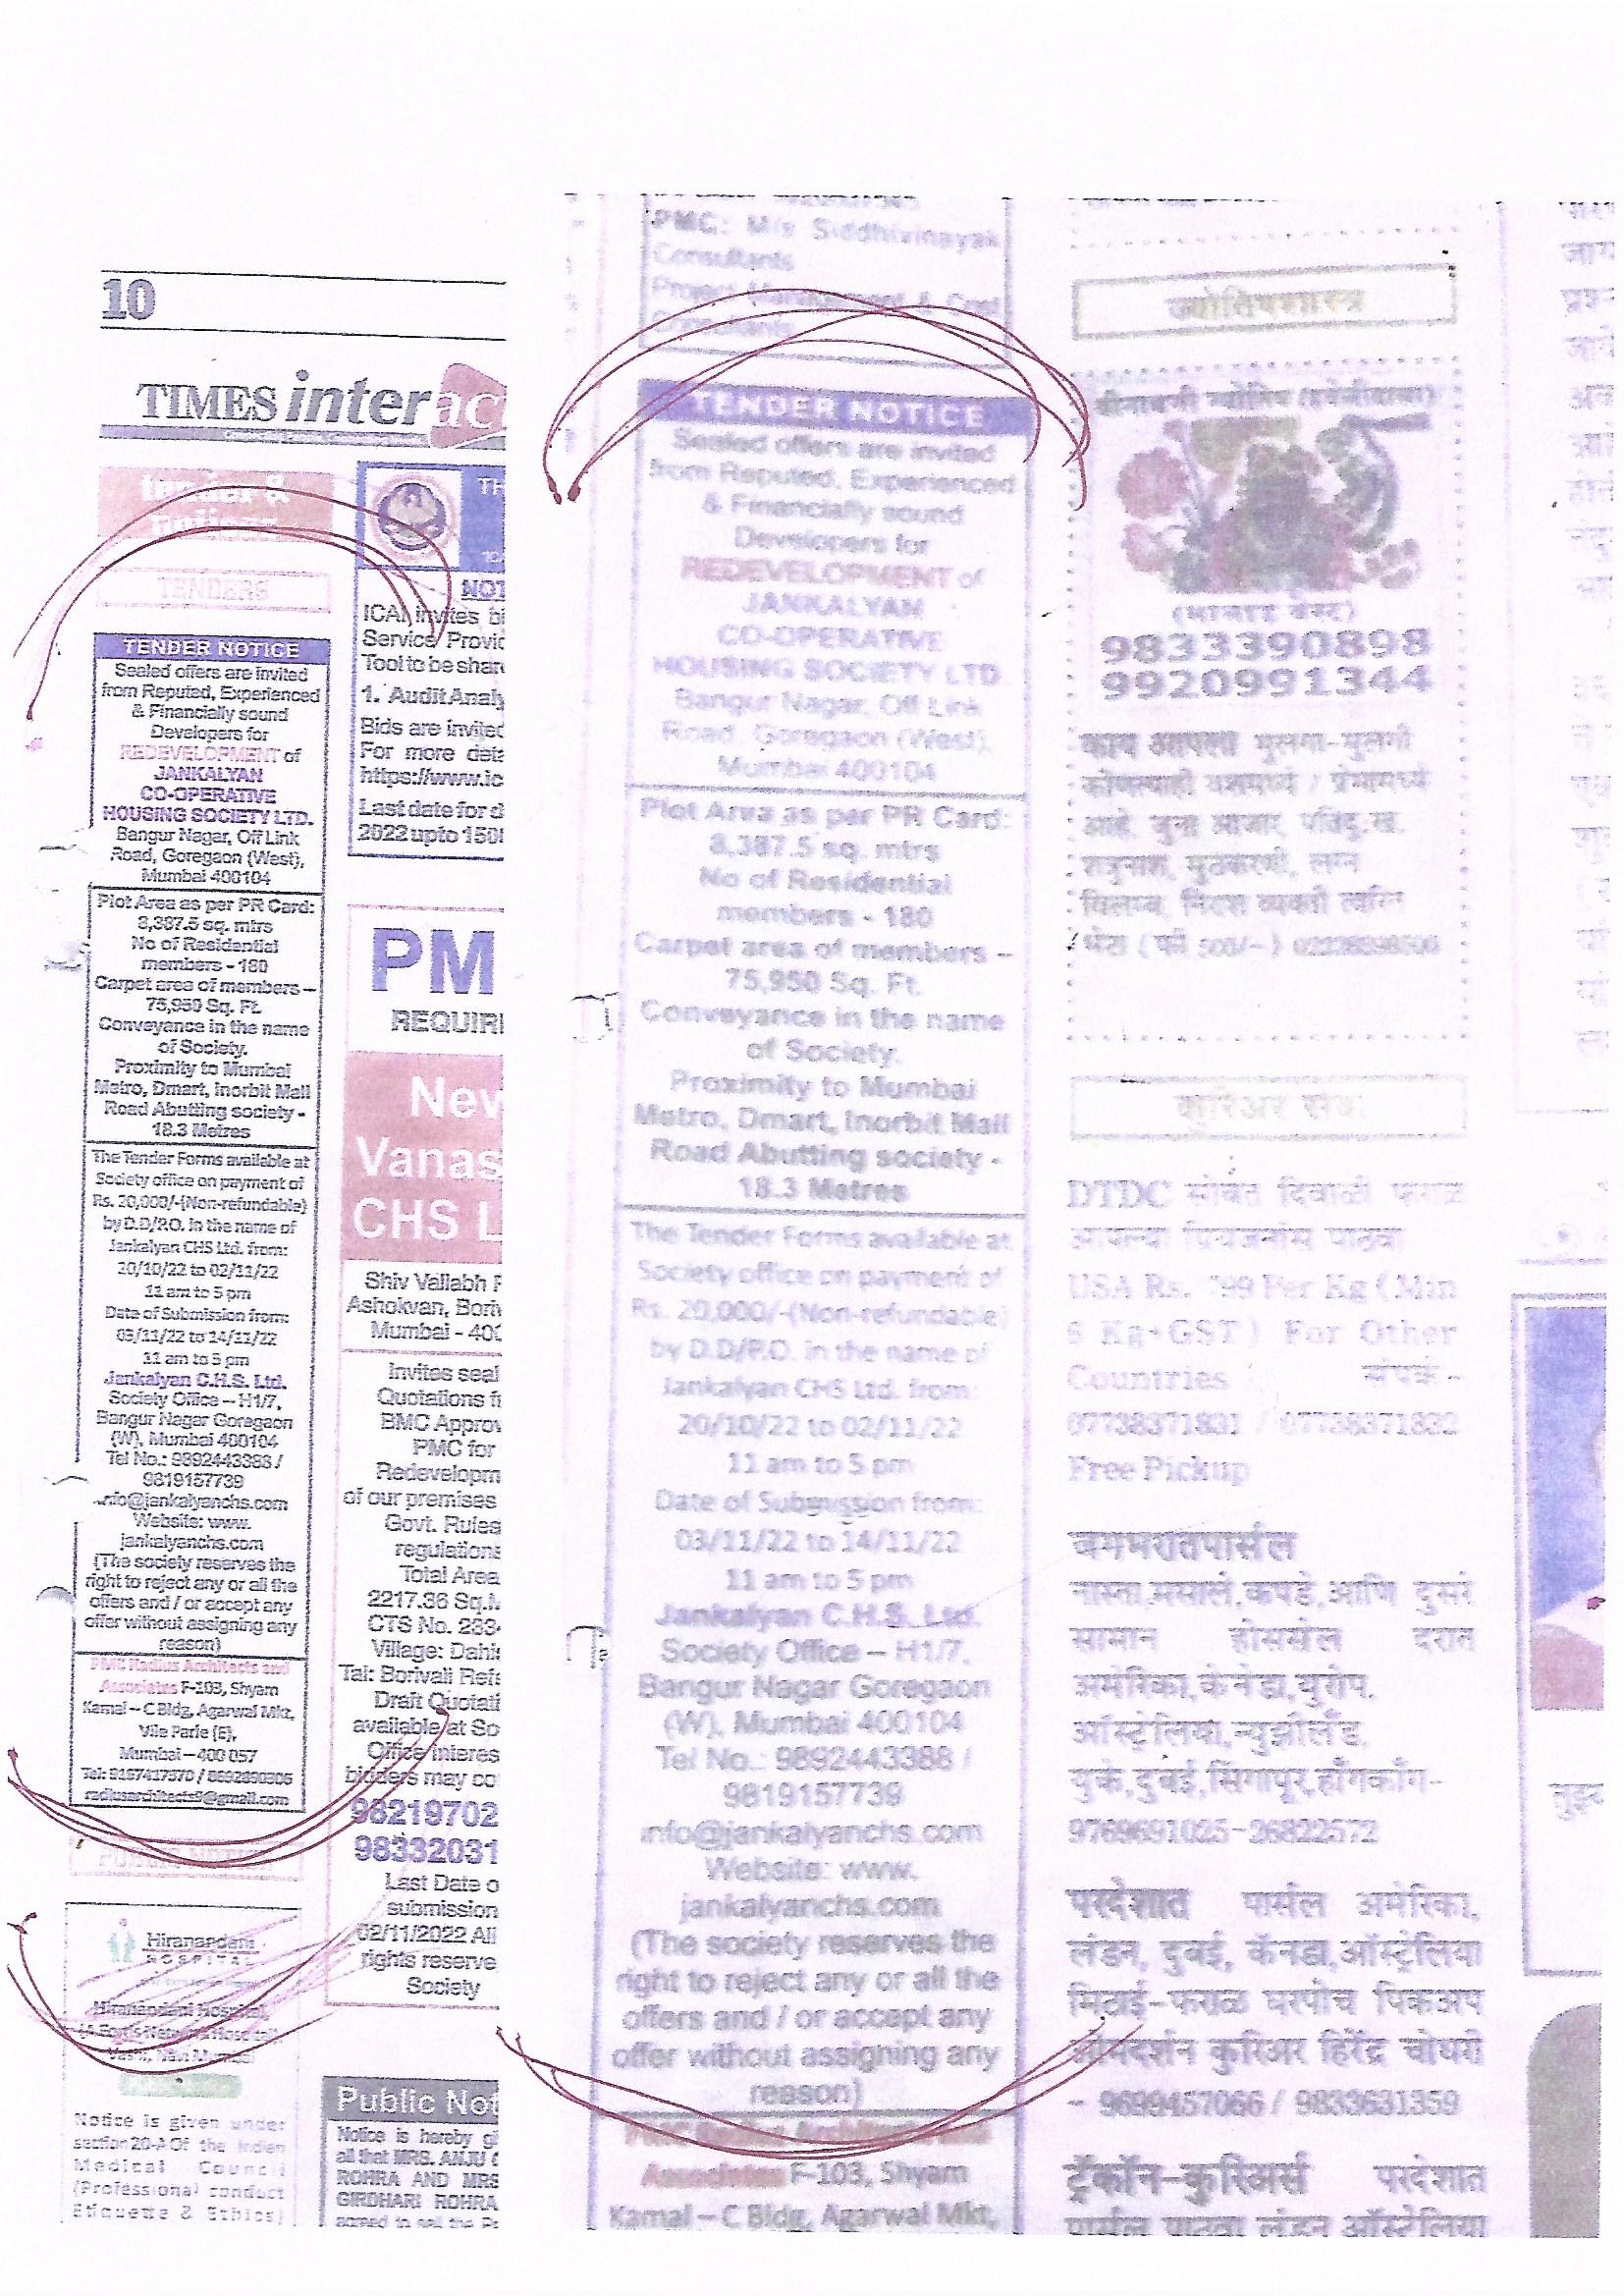 10
TIMES interac
tender &
notices
TENDERS
TENDER NOTICE
Sealed offers are invited
from Reputed, Experienced
& Financially sound
Developers for
REDEVELOPMENT of
JANKALYAN
CO-OPERATIVE
HOUSING SOCIETY LTD.
Bangur Nagar, Off Link
Road, Goregaon (West),
Mumbai 400104
Plot Area as per PR Card:
8,387.5 sq. mtrs
No of Residential
members - 180
Carpet area of members –
75,950 Sq. Ft.
Conveyance in the name
of Society.
Proximity to Mumbai
Metro, Dmart, Inorbit Mall
Road Abutting society -
18.3 Metres
The Tender Forms available at
Society office on payment of
Rs. 20,000/-(Non-refundable)
by D.D/P.O. in the name of
Jankalyan CHS Ltd. from:
20/10/22 to 02/11/22
11 am to 5 pm
Date of Submission from:
03/11/22 to 14/11/22
11 am to 5 pm
Jankalyan C.H.S. Ltd.
Society Office – H1/7,
Bangur Nagar Goregaon
(W), Mumbai 400104
Tel No.: 9892443388 /
9819157739
info@jankalyanchs.com
Website: www.
jankalyanchs.com
(The society reserves the
right to reject any or all the
offers and / or accept any
offer without assigning any
reason)
PMC Radius Architects and
Associates F-103, Shyam
Kamal – C Bldg, Agarwal Mkt,
Vile Parle (E),
Mumbai – 400 057
radiusarchitects9@gmail.com
Hiranandani
HOSPITAL
Hiranandani Hospital
Vashi, Navi Mumbai
Notice is given under
section 20-A Of the Indian
Medical Council
(Professional conduct
Etiquette & Ethics)
TH
NOT
ICAI invites bi
Service Provic
Tool to be shar
1. Audit Analy
Bids are invited
For more deta
https://www.ic
Last date for d
2022 upto 150
PM
REQUIR
New
Vanas
CHS L
Shiv Vallabh R
Ashokvan, Bori
Mumbai - 400
Invites seal
Quotations f
BMC Approv
PMC for
Redevelopm
of our premises
Govt. Rules
regulations
Total Area
2217.36 Sq.M
CTS No. 263
Village: Dahi
Tal: Borivali Refs
Draft Quotati
available at So
Office Interes
bidders may co
98219702
98332031
Last Date o
submission
02/11/2022 All
rights reserve
Society
Public Not
Notice is hereby gi
all that MRS. ANJU
ROHRA AND MRS
GIRDHARI ROHRA
agreed to sell the
PMC: M/s Siddhivinayak
Consultants
Project Management & Cost
Consultants
TENDER NOTICE
Sealed offers are invited
from Reputed, Experienced
& Financially sound
Developers for
REDEVELOPMENT of
JANKALYAN
CO-OPERATIVE
HOUSING SOCIETY LTD.
Bangur Nagar, Off Link
Road, Goregaon (West),
Mumbai 400104
Plot Area as per PR Card:
8,387.5 sq. mtrs
No of Residential
members - 180
Carpet area of members –
75,950 Sq. Ft.
Conveyance in the name
of Society.
Proximity to Mumbai
Metro, Dmart, Inorbit Mall
Road Abutting society -
18.3 Metres
The Tender Forms available at
Society office on payment of
Rs. 20,000/-(Non-refundable)
by D.D/P.O. in the name of
Jankalyan CHS Ltd. from:
20/10/22 to 02/11/22
11 am to 5 pm
Date of Submission from:
03/11/22 to 14/11/22
11 am to 5 pm
Jankalyan C.H.S. Ltd.
Society Office – H1/7,
Bangur Nagar Goregaon
(W), Mumbai 400104
Tel No.: 9892443388 /
9819157739
info@jankalyanchs.com
Website: www.
jankalyanchs.com
(The society reserves the
right to reject any or all the
offers and / or accept any
offer without assigning any
reason)
Associates F-103, Shyam
Kamal – C Bldg, Agarwal Mkt,
ज्योतिषशास्त्र
9833390898
9920991344
काय आपला मुलगा-मुलगी
शत्रुनाश, मुठकरणी, लग्न
कुरिअर सेवा
DTDC सोबत दिवाळी फराळ
आपल्या प्रियजनांस पाठवा
USA Rs. 799 Per Kg (Min
Kg+GST) For Other
Countries संपर्क-
07738371831 / 07738371832
Free Pickup
जगभरातपार्सल
नास्ता,मसाले,कपडे,आणि दुसरे
सामान होसमोल दरात
अमेरिका,केनेडा,युरोप,
ऑस्ट्रेलिया,न्युझीलँड,
युके,दुबई,सिंगापूर,हाँगकाँग-
9769691025-26822572
परदेशात पार्सल अमेरिका,
लंडन, दुबई, कॅनडा,ऑस्ट्रेलिया
मिठाई-फराळ घरपोच पिकअप
कुरिअर हिरेंद्र चौधरी
- 9699457066 / 9833631359
ट्रॅकॉन-कुरिअर्स परदेशात
पार्सल पाठवा लंडन ऑस्ट्रेलिया